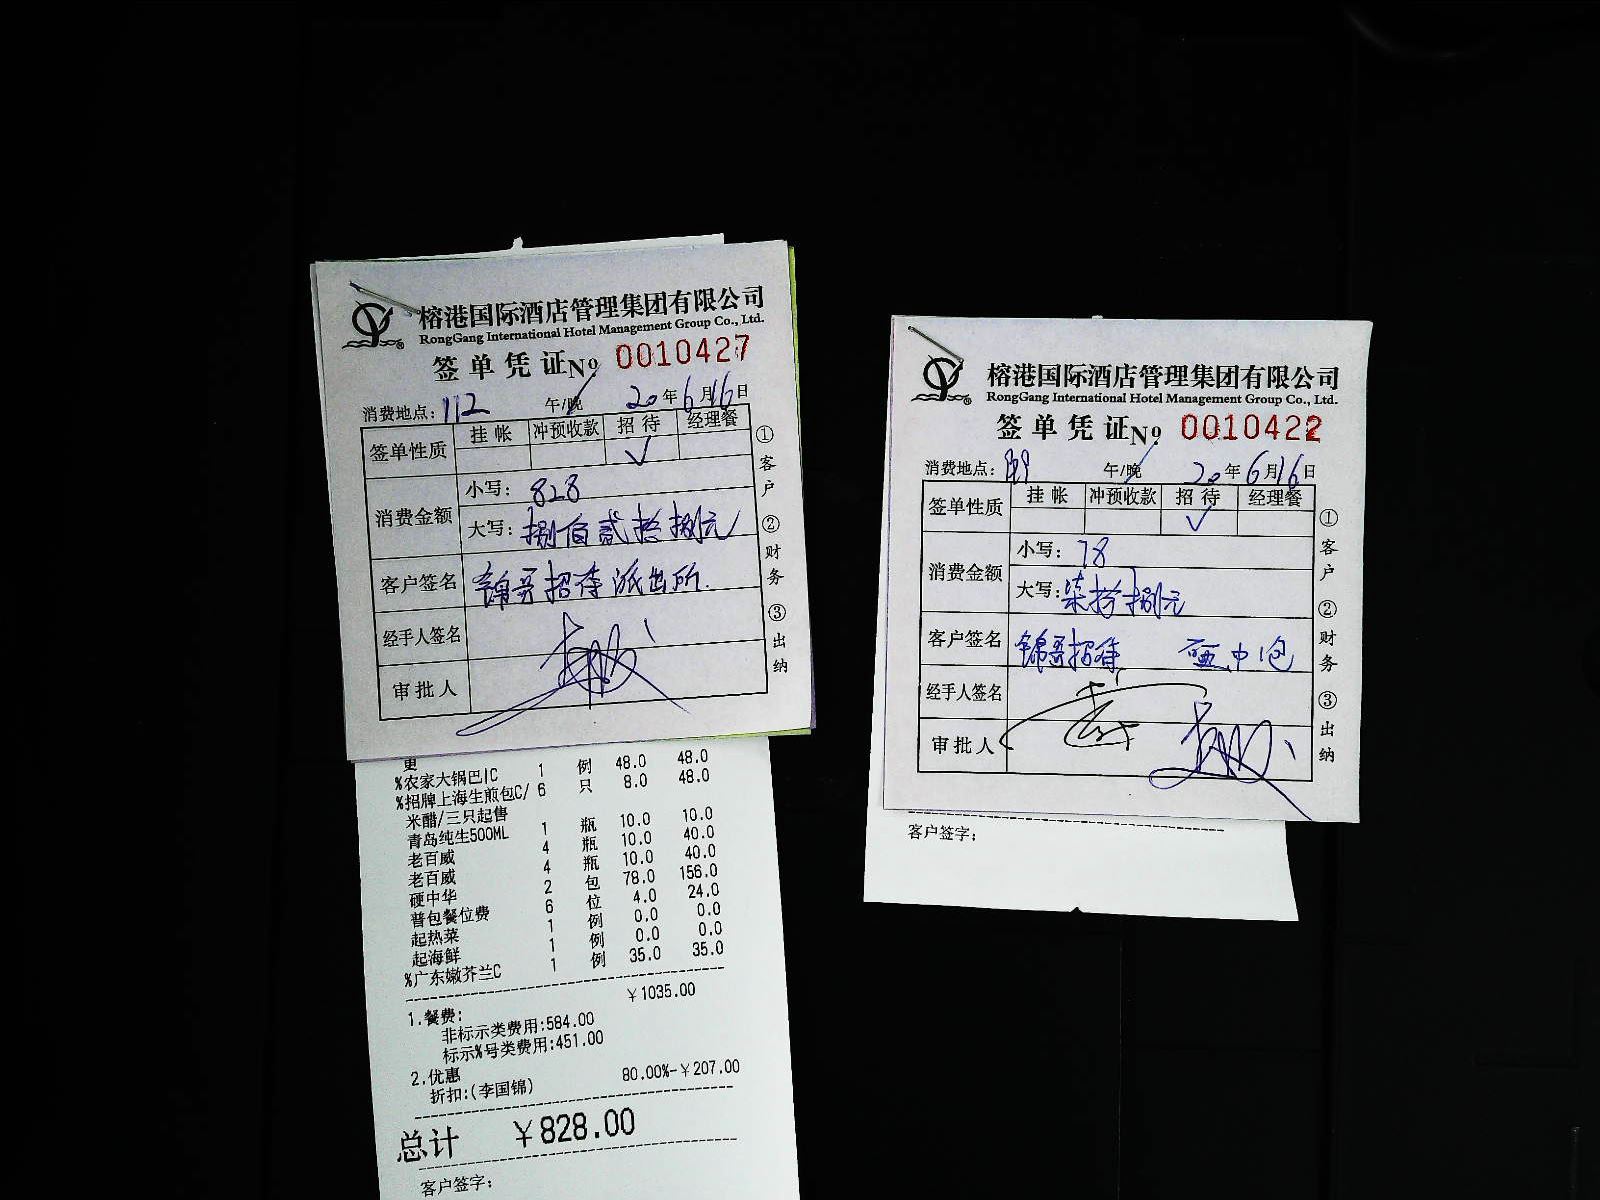 榕港国际酒店管理集团有限公司
RongGang International Hotel Management Group Co., Ltd.
签单凭证 № 0010427
消费地点：112 午/晚 20年6月16日
签单性质 挂帐 冲预收款 招待 经理餐
✓
消费金额 小写：828
大写：捌佰贰拾捌元
客户签名 锦哥招待派出所.
经手人签名
审批人
①客户 ②财务 ③出纳
更
%农家大锅巴IC 1 例 48.0 48.0
%招牌上海生煎包C/ 6 只 8.0 48.0
米醋/三只起售
青岛纯生500ML 1 瓶 10.0 10.0
老百威 4 瓶 10.0 40.0
老百威 4 瓶 10.0 40.0
硬中华 2 包 78.0 156.0
普包餐位费 6 位 4.0 24.0
起热菜 1 例 0.0 0.0
起海鲜 1 例 0.0 0.0
%广东嫩芥兰C 1 例 35.0 35.0
1.餐费: ￥1035.00
非标示类费用:584.00
标示%号类费用:451.00
2.优惠
折扣:(李国锦) 80.00%-￥207.00
总计 ￥828.00
客户签字:
榕港国际酒店管理集团有限公司
RongGang International Hotel Management Group Co., Ltd.
签单凭证 № 0010422
消费地点： 午/晚 20年6月16日
签单性质 挂帐 冲预收款 招待 经理餐
✓
消费金额 小写：78
大写：柒拾捌元
客户签名 锦哥招待 中 包
经手人签名
审批人
①客户 ②财务 ③出纳
客户签字: